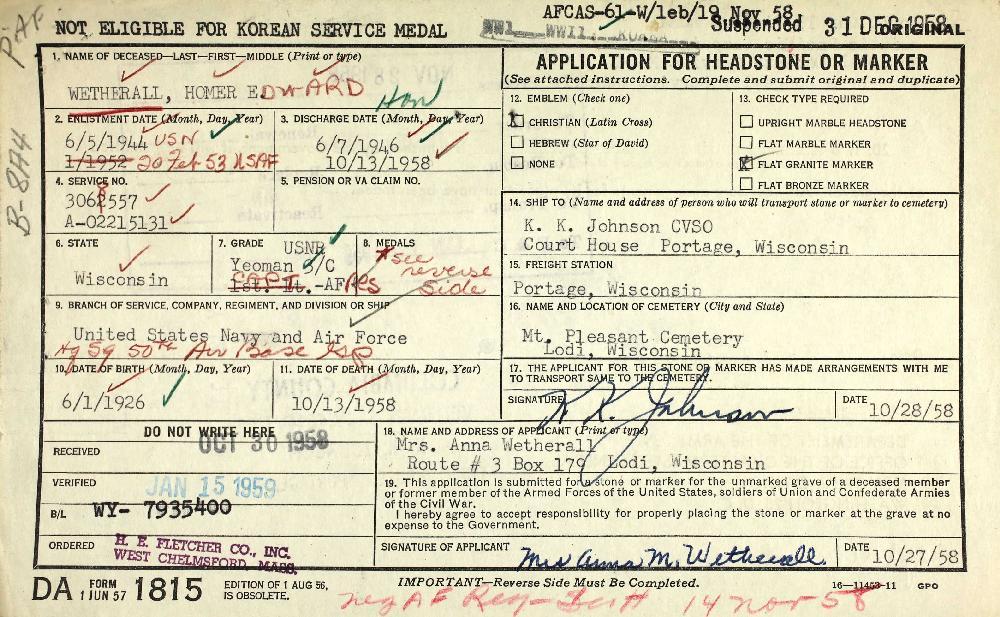 AFCAS-61-W/leb/19 Nov 58
NOT ELIGIBLE FOR KOREAN SERVICE MEDAL
WW1 WWII KOREA
Suspended 31 DEC 1958
ORIGINAL
B-8A4
1. NAME OF DECEASED—LAST—FIRST—MIDDLE (Print or type)
WETHERALL, HOMER EDWARD
Hon
2. ENLISTMENT DATE (Month, Day, Year)
6/5/1944 USN
1/1952 20 Feb 53 USAF
3. DISCHARGE DATE (Month, Day, Year)
6/7/1946
10/13/1958
4. SERVICE NO.
3062557
A-02215131
5. PENSION OR VA CLAIM NO.
6. STATE
Wisconsin
7. GRADE
USNR
Yeoman 3/C
CAPT
1st. Lt.-AF Res
8. MEDALS
*see reverse side
9. BRANCH OF SERVICE, COMPANY, REGIMENT, AND DIVISION OR SHIP
United States Navy and Air Force
Hq Sq 50th Air Base Gp
10. DATE OF BIRTH (Month, Day, Year)
6/1/1926
11. DATE OF DEATH (Month, Day, Year)
10/13/1958
APPLICATION FOR HEADSTONE OR MARKER
(See attached instructions. Complete and submit original and duplicate)
12. EMBLEM (Check one)
X CHRISTIAN (Latin Cross)
HEBREW (Star of David)
NONE
13. CHECK TYPE REQUIRED
UPRIGHT MARBLE HEADSTONE
FLAT MARBLE MARKER
X FLAT GRANITE MARKER
FLAT BRONZE MARKER
14. SHIP TO (Name and address of person who will transport stone or marker to cemetery)
K. K. Johnson CVSO
Court House Portage, Wisconsin
15. FREIGHT STATION
Portage, Wisconsin
16. NAME AND LOCATION OF CEMETERY (City and State)
Mt. Pleasant Cemetery
Lodi, Wisconsin
17. THE APPLICANT FOR THIS STONE OR MARKER HAS MADE ARRANGEMENTS WITH ME
TO TRANSPORT SAME TO THE CEMETERY.
SIGNATURE K K Johnson DATE 10/28/58
DO NOT WRITE HERE
RECEIVED OCT 30 1958
VERIFIED JAN 15 1959
B/L WY- 7935400
ORDERED H. E. FLETCHER CO., INC.
WEST CHELMSFORD, MASS.
18. NAME AND ADDRESS OF APPLICANT (Print or type)
Mrs. Anna Wetherall
Route # 3 Box 179 Lodi, Wisconsin
19. This application is submitted for a stone or marker for the unmarked grave of a deceased member
or former member of the Armed Forces of the United States, soldiers of Union and Confederate Armies
of the Civil War.
I hereby agree to accept responsibility for properly placing the stone or marker at the grave at no
expense to the Government.
SIGNATURE OF APPLICANT Mrs Anna M. Wetherall DATE 10/27/58
DA FORM 1 JUN 57 1815
EDITION OF 1 AUG 56,
IS OBSOLETE.
IMPORTANT—Reverse Side Must Be Completed.
16—11453-11 GPO
neg AF Reg- 14 nov 58